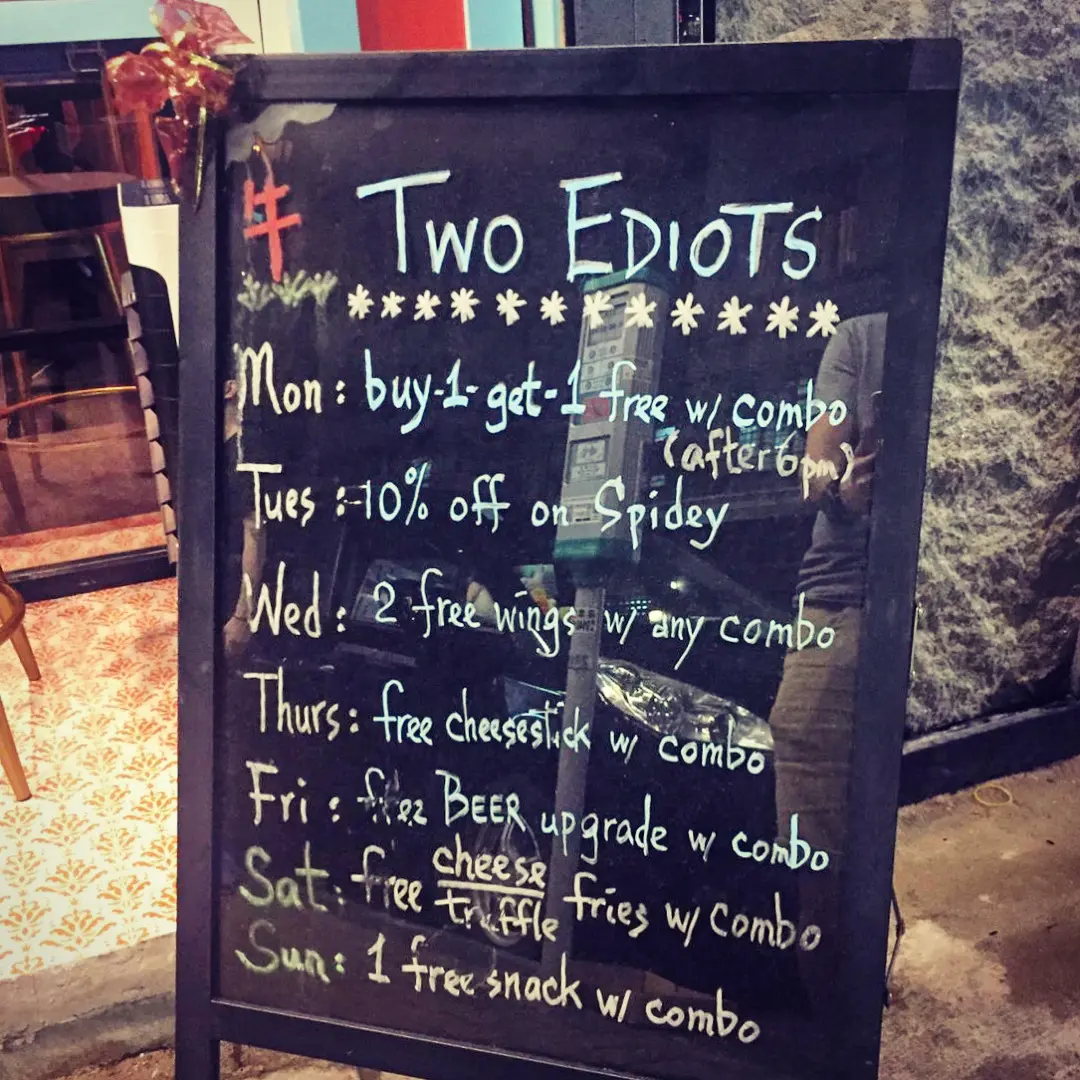 Two Ediots
************
Mon : buy-1-get-1 free w/ combo
(after 6pm)
Tues : 10% off on Spidey
Wed : 2 free wings w/ any combo
Thurs : free cheesestick w/ combo
Fri : free BEER upgrade w/ combo
Sat : free cheese/truffle fries w/ combo
Sun : 1 free snack w/ combo